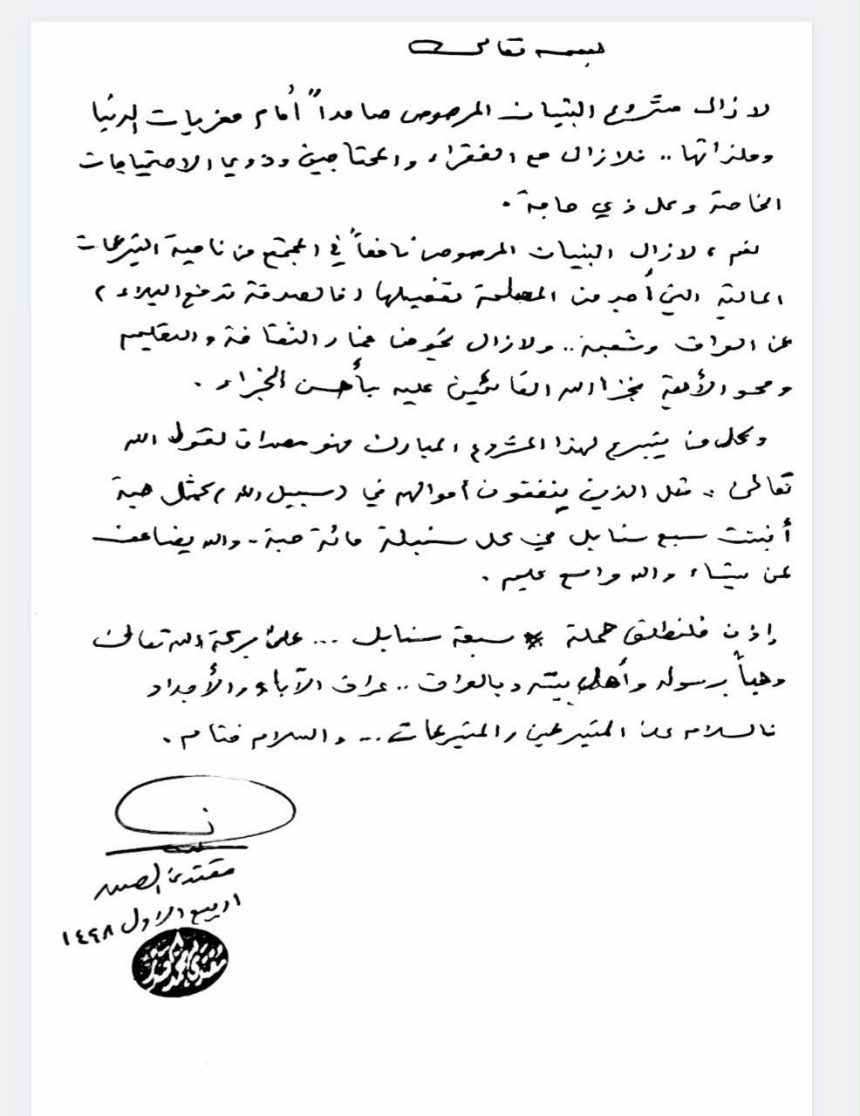 بسمه تعالى
لا زال مشروع البنيان المرصوص صامداً أمام مغريات الدنيا
وملذاتها.. فلازال مع الفقراء والمحتاجين وذويا الاحتياجات
الخاصة وكل ذي حاجة.
نعم، لازال البنيان المرصوص نافعاً في المجتمع من ناحية التبرعات
المالية التي أجد من المصلحة تفعيلها (فالصدقة تدفع البلاء)
عن العراق وشعبه.. ولازال يخوض غمار الثقافة والتعليم
ومحو الأمية فجزا الله القائمين عليه بأحسن الجزاء.
وكل من يتبرع لهذا المشروع المبارك فهو مصداق لقول الله
تعالى: مثل الذين ينفقون أموالهم في (سبيل الله) كمثل حبة
أنبتت سبع سنابل في كل سنبلة مائة حبة - والله يضاعف
لمن يشاء والله واسع عليم.
إذن فلنطلق حملة سبعة سنابل ... على بركة الله تعالى
وحباً برسوله وأهل بيته وبالعراق.. عراق الآباء والأجداد
فالسلام على المتبرعين والمتبرعات... والسلام ختام.
مقتدى الصدر
١ ربيع الاول ١٤٤٨